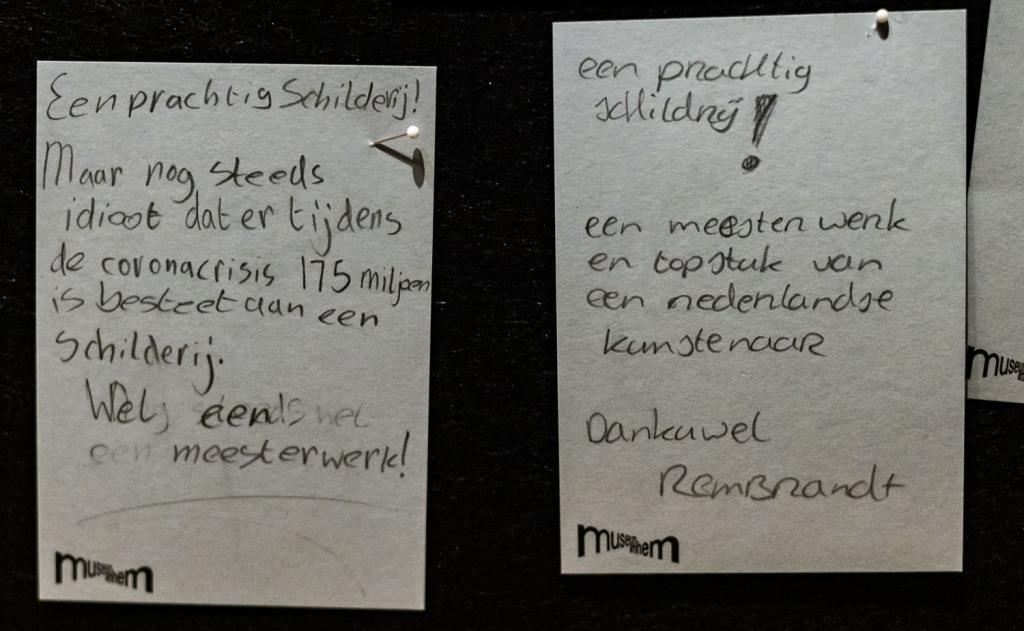 Een prachtig Schilderij!
Maar nog steeds
idioot dat er tijdens
de coronacrisis 175 miljoen
is besteet aan een
Schilderij.
Wel een
meesterwerk!
museum
een prachtig
schildrij!
een meesterwerk
en topstuk van
een nederlandse
kunstenaar
Dankuwel
Rembrandt
museum
museu